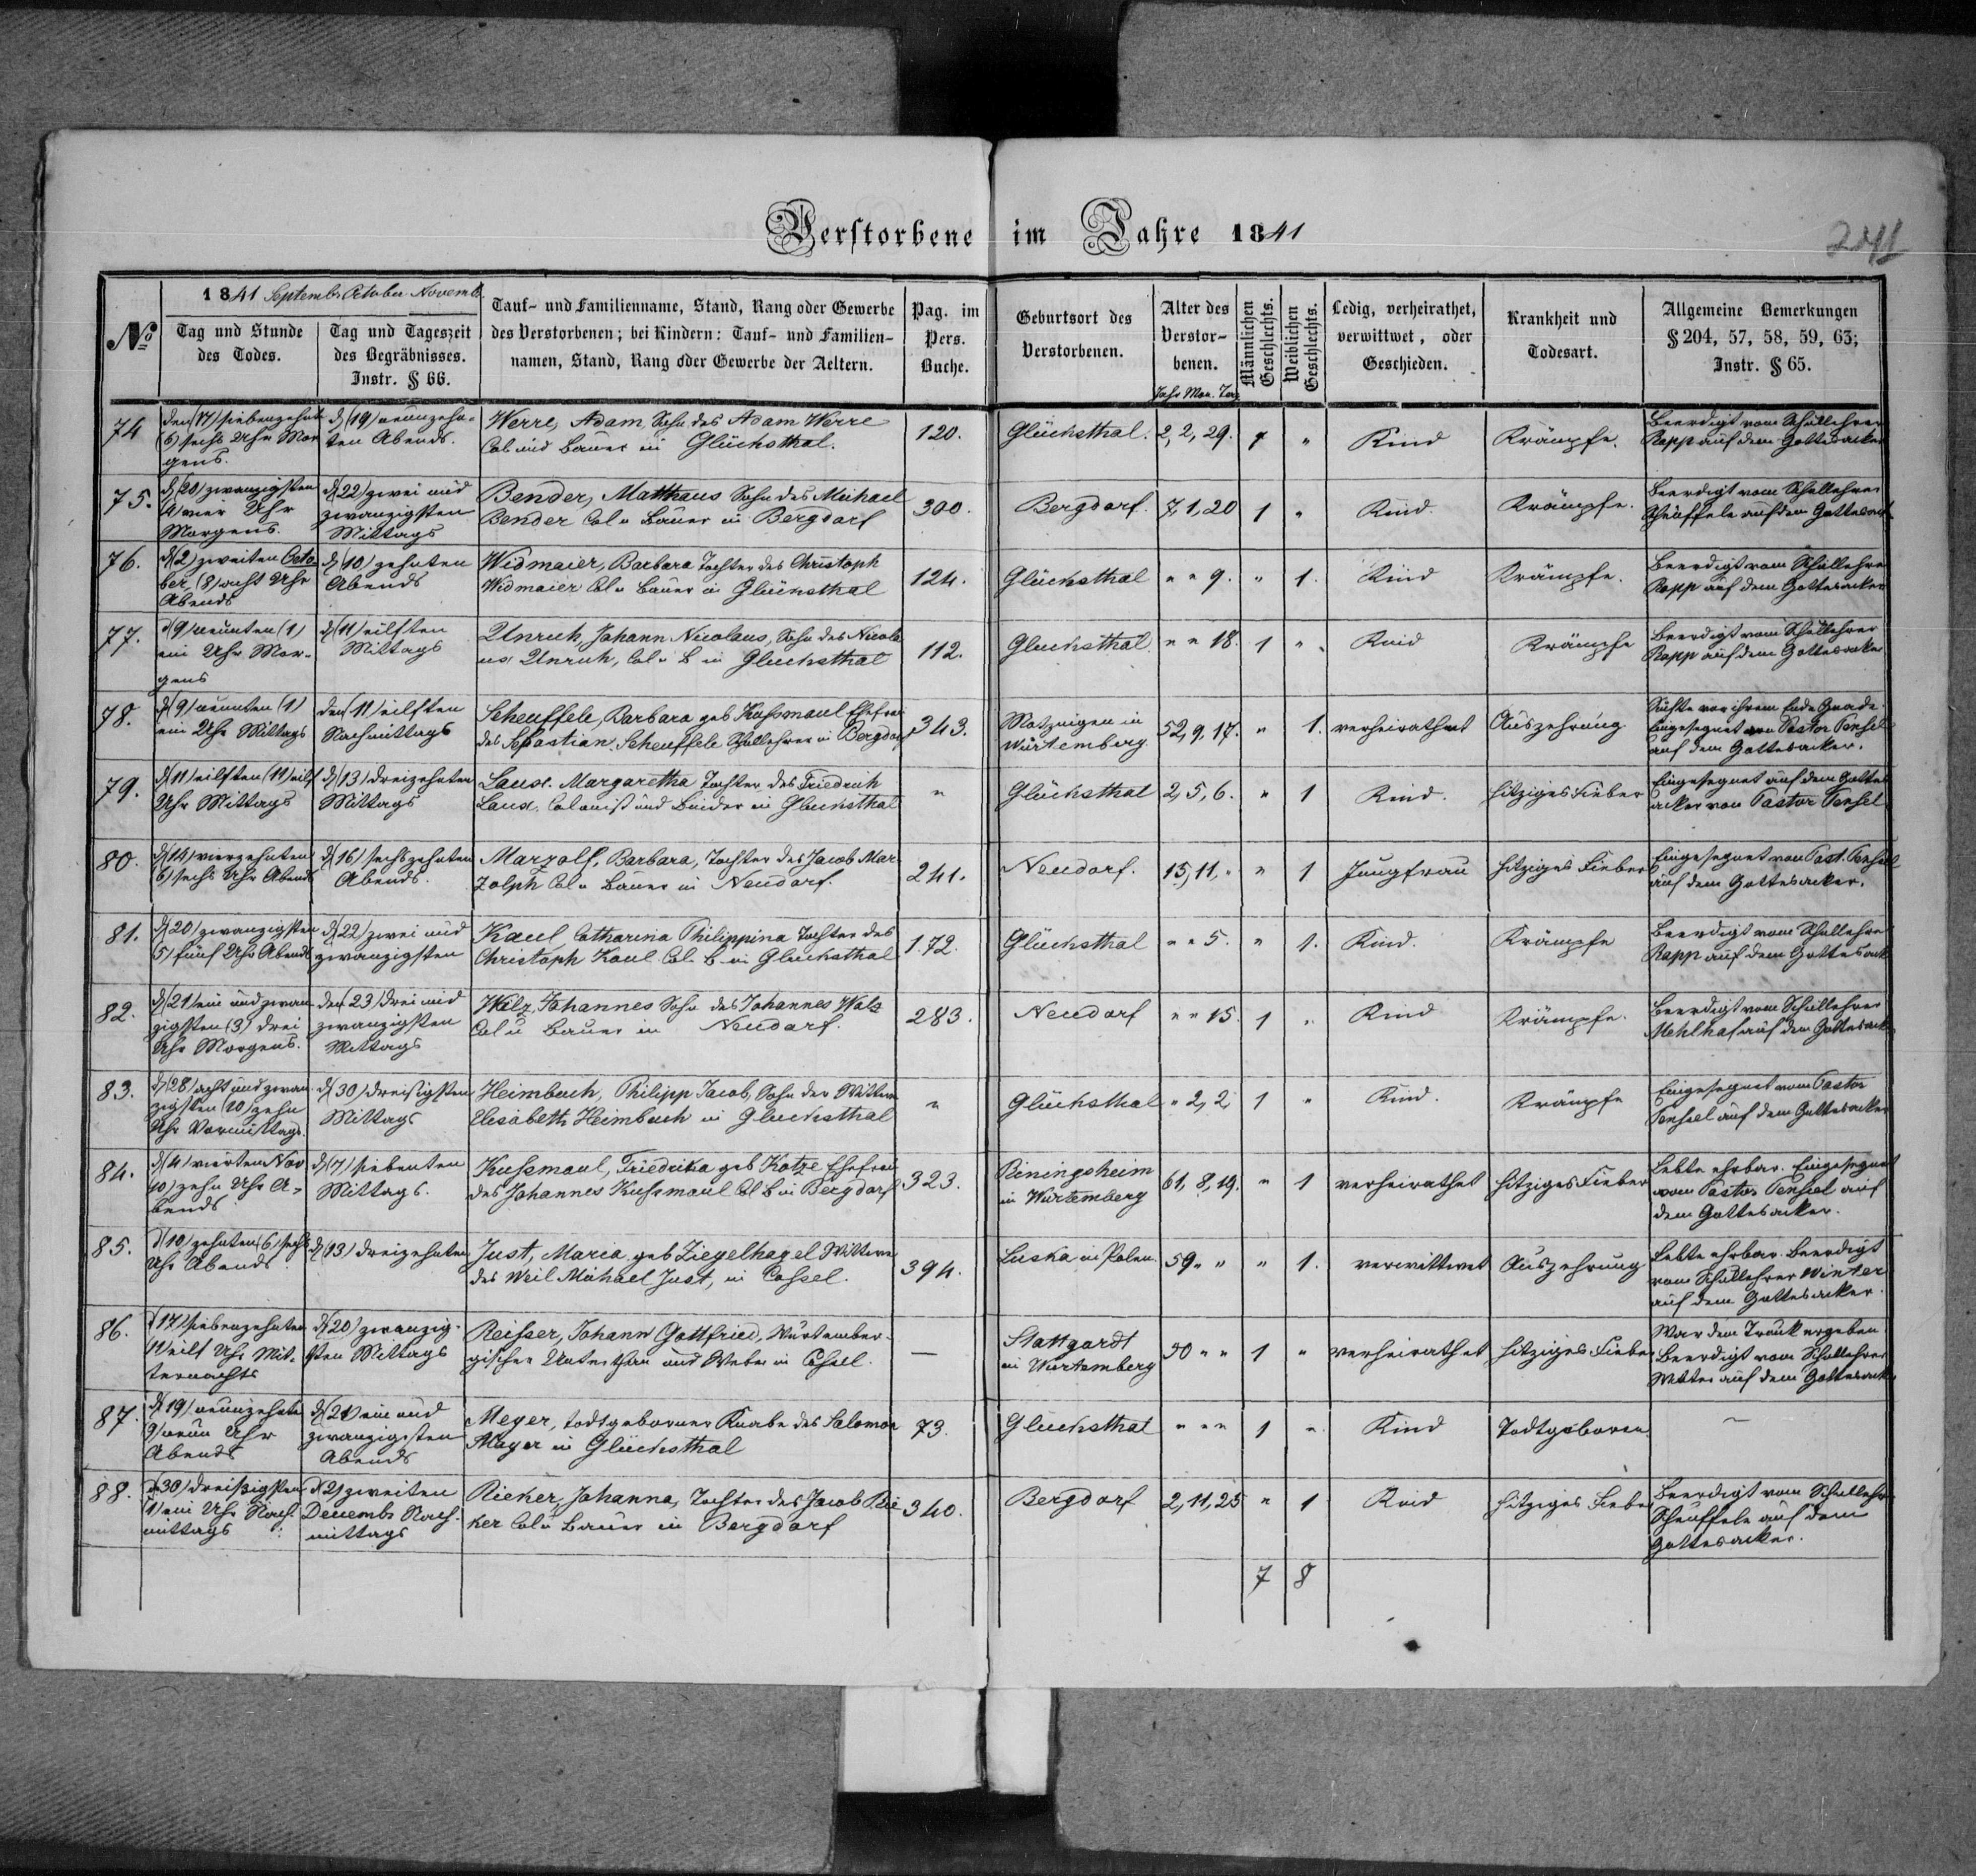 Verstorbene im Jahre 1841
241
1841 Septemb. October Novemb.
No
Tag und Stunde
des Todes.
Tag und Tageszeit
des Begräbnisses.
Instr. § 66.
Tauf- und Familienname, Stand, Rang oder Gewerbe
des Verstorbenen; bei Kindern: Tauf- und Familien-
namen, Stand, Rang oder Gewerbe der Aeltern.
Pag. im
Pers.
Buche.
Geburtsort des
Verstorbenen.
Alter des
Verstor-
benen.
Jahr Mon. Tag
Männlichen
Geschlechts.
Weiblichen
Geschlechts.
Ledig, verheirathet,
verwittwet, oder
Geschieden.
Krankheit und
Todesart.
Allgemeine Bemerkungen
§ 204, 57, 58, 59, 63;
Instr. § 65.
74
den (17) siebenzehnt
(6) sechs Uhr Mor
gens.
d (19) neunzehn-
ten Abends.
Werre, Adam, Sohn des Adam Werre
Col und Bauer in Glücksthal.
120.
Glücksthal.
2, 2, 29.
1 "
Kind
Krämpfe.
Beerdigt vom Schullehrer
Rapp auf dem Gottesacker
75.
d (20) zwanzigsten
(4) vier Uhr
Morgens.
d (22) zwei und
zwanzigsten
Mittags
Bender, Matthaus Sohn des Michael
Bender Col u Bauer in Bergdorf
300.
Bergdorf.
7, 1, 20
1 "
Kind.
Krämpfe.
Beerdigt vom Schullehrer
Scheuffele auf dem Gottesack
76.
d (2) zweiten Octo
ber, (8) acht Uhr
Abends
d (10) zehnten
Abends
Widmaier, Barbara Tochter des Christoph
Widmaier Col u Bauer in Glücksthal
124.
Glücksthal
" " 9.
" 1.
Kind
Krämpfe.
Beerdigt vom Schullehrer
Rapp auf dem Gottesacker
77.
d (9) neunten (1)
ein Uhr Mor-
gens
d (11) eilften
Mittags
Unruh, Johann Nicolaus, Sohn des Nicola
us Unruh, Col u B in Glucksthal
112.
Glucksthal.
" " 18.
1 "
Kind
Krämpfe
Beerdigt vom Schullehrer
Rapp auf dem Gottesacker
78.
d (9) neunten (1)
ein Uhr Mittags
den (11) eilften
Nachmittags
Scheuffele, Barbara geb Kussmaul Ehefrau
des Sebastian Scheuffele Schullehrer in Bergdorf
343.
Matzingen in
Würtemberg
52, 9, 17.
" 1.
verheirathet
Auszehrung
Suchte vor ihrem Ende Gnade.
Eingesegnet von Pastor Pensel
auf dem Gottesacker.
79.
d (11) eilften (11) eilf
Uhr Mittags
d (13) dreizehnten
Mittags
Laux. Margaretha Tochter des Friedrich
Laux, Colonist und Binder in Glucksthal
"
Glücksthal
2, 5, 6.
" 1
Kind.
hitziges Fieber
Eingesegnet auf dem Gottes
acker von Pastor Pensel
80.
d (14) vierzehnten
(6) sechs Uhr Abends
d (16) sechszehnten
Abends.
Marzolf, Barbara, Tochter des Jacob Mar
zolph Col u Bauer in Neudorf.
241.
Neudorf.
15, 11, "
" 1
Jungfrau
hitziges Fieber
Eingesegnet von Past. Pensel
auf dem Gottesacker.
81.
d (20) zwanzigsten
(5) fünf Uhr Abends
d (22) zwei und
zwanzigsten
Kaul, Catharina Philippina Tochter des
Christoph Kaul Col. B in Glucksthal
172.
Glücksthal
" " 5.
" 1.
Kind.
Krämpfe
Beerdigt vom Schullehrer
Rapp auf dem Gottesack
82.
d (21) ein und zwan
zigsten (3) drei
Uhr Morgens.
den (23) drei und
zwanzigsten
Mittags
Walz, Johannes Sohn des Johannes Walz
Col u Bauer in Neudorf.
283.
Neudorf
" " 15.
1 "
Kind
Krämpfe.
Beerdigt vom Schullehrer
Mehlhaf auf dem Gottesack
83.
d (28) acht und zwan
zigsten (10) zehn
Uhr Vormittags
d (30) dreisigsten
Mittags
Heimbuch, Philipp Jacob, Sohn der Wittwe
Elisabeth Heimbuch in Glucksthal
"
Glücksthal
" 2, 2
1 "
Kind.
Krämpfe
Eingesegnet vom Pastor
Pensel auf dem Gottesacker
84.
d (4) vierten Nov
(10) zehn Uhr A-
bends
d (7) siebenten
Mittags.
Kussmaul, Friedrika geb Kotze Ehefrau
des Johannes Kussmaul Col B in Bergdorf
323.
Biningsheim
in Wurtemberg
61, 8, 19.
" 1
verheirathet
hitziges Fieber
Lebte ehrbar. Eingesegnet
vom Pastor Pensel auf
dem Gottesacker.
85.
d (10) zehnten (6) sechs
Uhr Abends
d (13) dreizehnten
Just, Maria geb Ziegelhagel Wittwe
des Weil Michael Just, in Cassel.
394.
Luska in Polen.
59 " "
" 1.
verwittwet
Auszehrung
Lebte ehrbar. Beerdigt
vom Schullehrer Winter
auf dem Gottesacker.
86.
d (17) siebenzehnten
11 eilf Uhr Mit-
ternachts
d (20) zwanzig-
sten Mittags
Reisser, Johann Gottfried, Würtember-
gischer Unterthan und Weber in Cassel.
—
Stattgardt
in Wurtemberg
50 " "
1 "
verheirathet
hitziges Fieber
War dem Trunk ergeben.
Beerdigt vom Schullehrer
auf dem Gottesack
87.
d 19) neunzehnte
9) neun Uhr
Abends
d (21) ein und
zwanzigsten
Abends
Meyer, todtgeborner Knabe des Salomon
Mayer in Glücksthal
73.
Glücksthal
" " "
1 "
Kind
Todtgeboren.
—
88.
d 30) dreißigsten
1) ein Uhr Nach
mittags
d 2) zweiten
Decembr Nach-
mittags
Rieker, Johanna, Tochter des Jacob Rie
ker Col u Bauer in Bergdorf
340.
Bergdorf
2, 11, 25
" 1
Kind
hitziges Fieber
Beerdigt vom Schullehr
Scheuffele auf dem
Gottesacker.
7 8